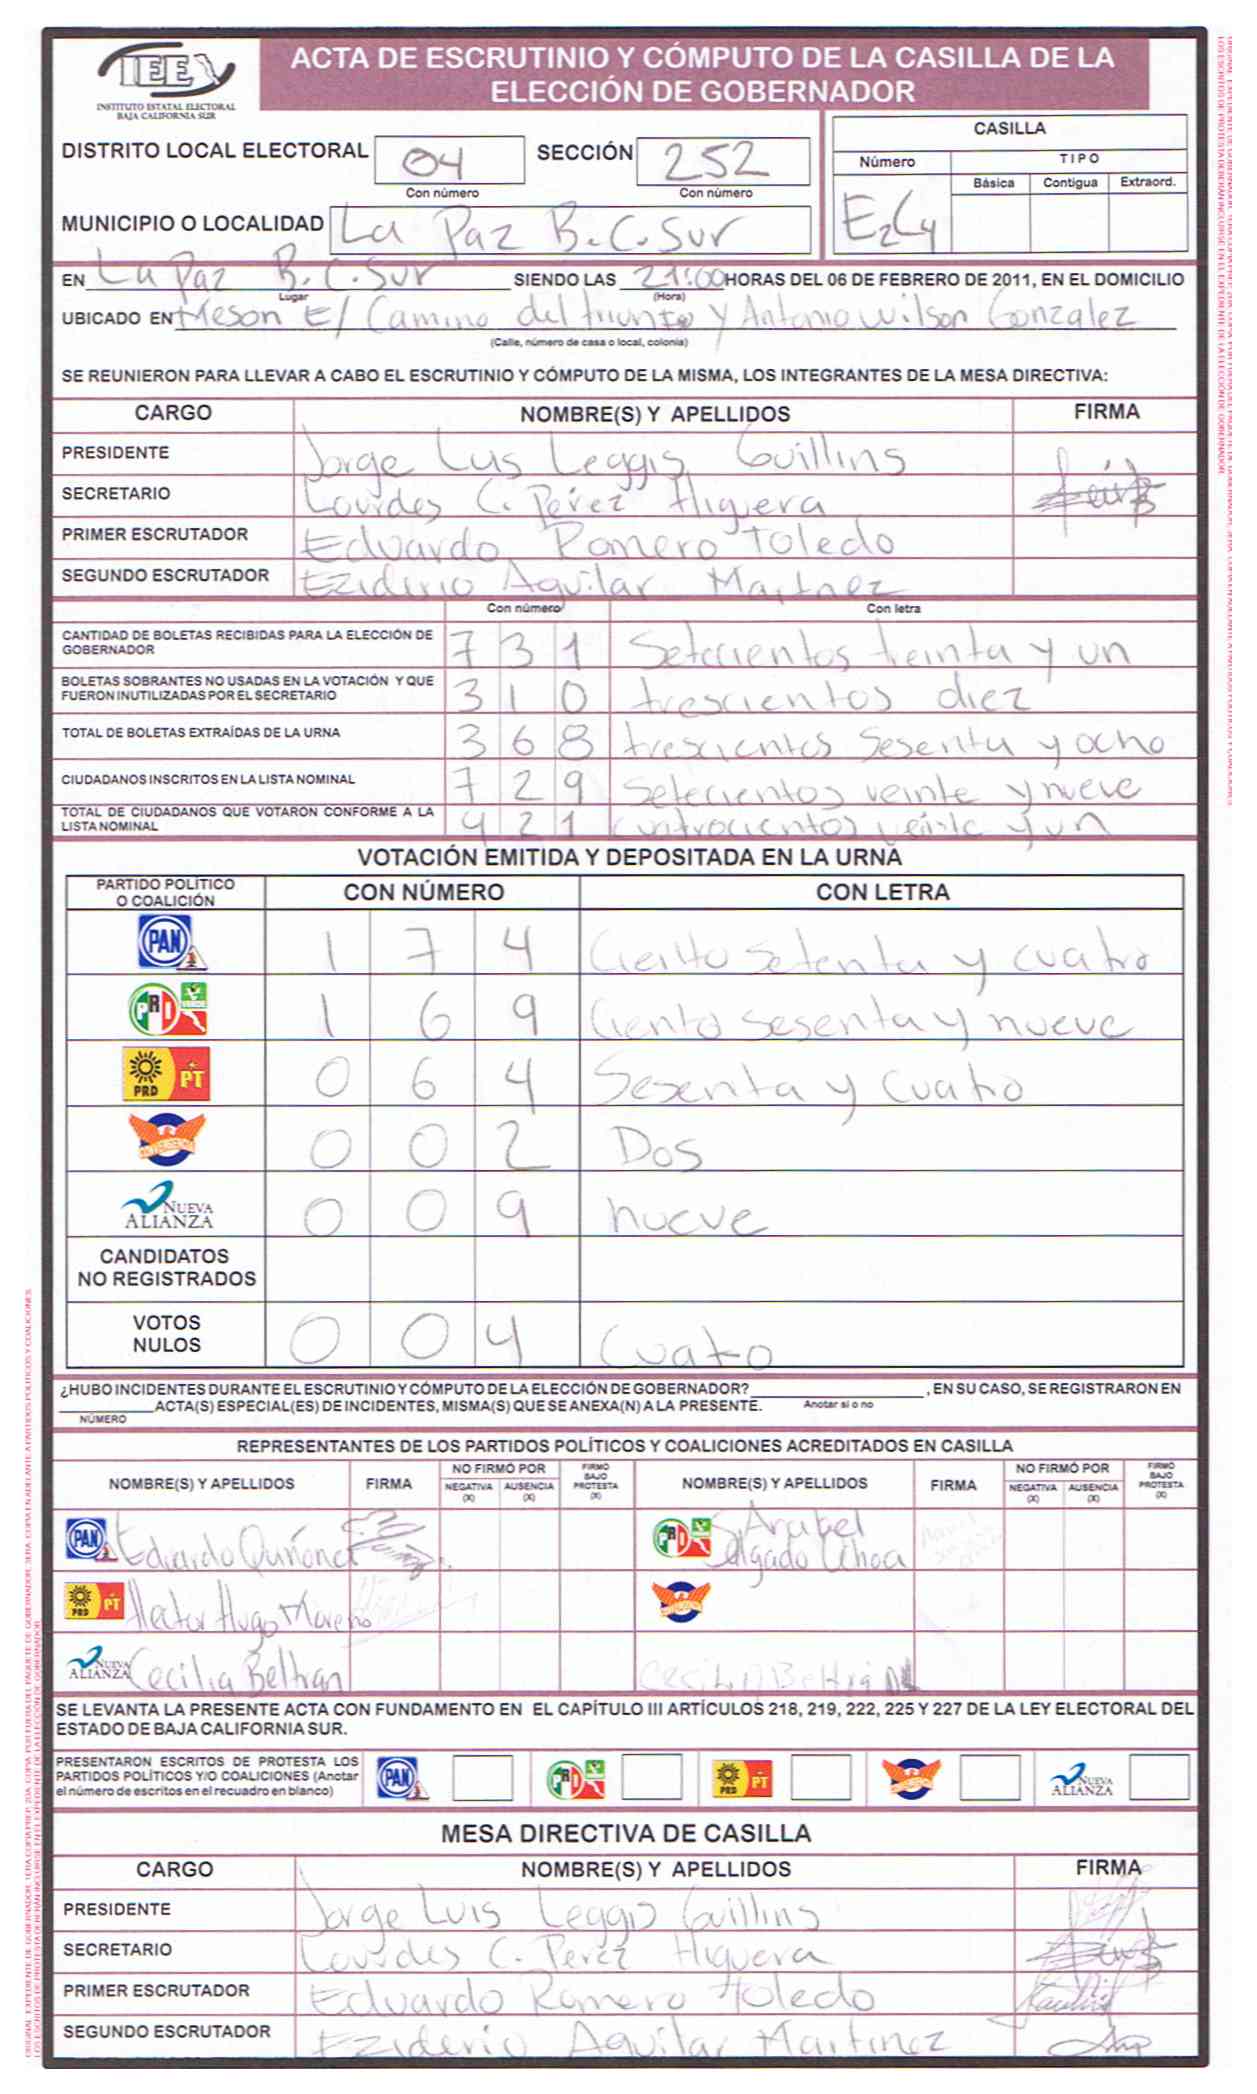 IEE
INSTITUTO ESTATAL ELECTORAL
BAJA CALIFORNIA SUR
ACTA DE ESCRUTINIO Y CÓMPUTO DE LA CASILLA DE LA
ELECCIÓN DE GOBERNADOR
DISTRITO LOCAL ELECTORAL 04 SECCIÓN 252
Con número Con número
MUNICIPIO O LOCALIDAD La Paz B.C.Sur
CASILLA
Número TIPO
Básica Contigua Extraord.
E2C4
EN La Paz B.C.Sur SIENDO LAS 21:00 HORAS DEL 06 DE FEBRERO DE 2011, EN EL DOMICILIO
Lugar (Hora)
UBICADO EN Meson E/ Camino del triunfo y Antonio Wilson Gonzalez
(Calle, número de casa o local, colonia)
SE REUNIERON PARA LLEVAR A CABO EL ESCRUTINIO Y CÓMPUTO DE LA MISMA, LOS INTEGRANTES DE LA MESA DIRECTIVA:
CARGO NOMBRE(S) Y APELLIDOS FIRMA
PRESIDENTE Jorge Lus Leggis Guillins
SECRETARIO Lourdes C. Pérez Higuera
PRIMER ESCRUTADOR Eduardo Romero Toledo
SEGUNDO ESCRUTADOR Eziderio Aguilar Martnez
Con número Con letra
CANTIDAD DE BOLETAS RECIBIDAS PARA LA ELECCIÓN DE
GOBERNADOR 731 Setecientos treinta y un
BOLETAS SOBRANTES NO USADAS EN LA VOTACIÓN Y QUE
FUERON INUTILIZADAS POR EL SECRETARIO 310 trescientos diez
TOTAL DE BOLETAS EXTRAÍDAS DE LA URNA 368 trescientos sesenta y ocho
CIUDADANOS INSCRITOS EN LA LISTA NOMINAL 729 Setecientos veinte y nueve
TOTAL DE CIUDADANOS QUE VOTARON CONFORME A LA
LISTA NOMINAL 421 cuatrocientos veinte y un
VOTACIÓN EMITIDA Y DEPOSITADA EN LA URNA
PARTIDO POLÍTICO
O COALICIÓN CON NÚMERO CON LETRA
PAN 1 7 4 Ciento setenta y cuatro
PRI VERDE 1 6 9 Ciento sesenta y nueve
PRD PT 0 6 4 Sesenta y cuatro
CONVERGENCIA 0 0 2 Dos
NUEVA ALIANZA 0 0 9 nueve
CANDIDATOS
NO REGISTRADOS
VOTOS
NULOS 0 0 4 Cuatro
¿HUBO INCIDENTES DURANTE EL ESCRUTINIO Y CÓMPUTO DE LA ELECCIÓN DE GOBERNADOR? , EN SU CASO, SE REGISTRARON EN
ACTA(S) ESPECIAL(ES) DE INCIDENTES, MISMA(S) QUE SE ANEXA(N) A LA PRESENTE. Anotar si o no
NÚMERO
REPRESENTANTES DE LOS PARTIDOS POLÍTICOS Y COALICIONES ACREDITADOS EN CASILLA
NOMBRE(S) Y APELLIDOS FIRMA NO FIRMÓ POR NEGATIVA (X) AUSENCIA (X) FIRMÓ BAJO PROTESTA (X) NOMBRE(S) Y APELLIDOS FIRMA NO FIRMÓ POR NEGATIVA (X) AUSENCIA (X) FIRMÓ BAJO PROTESTA (X)
PAN Eduardo Quiñonez PRI Anabel
Salgado Ochoa
PRD PT Hector Hugo Moreno CONVERGENCIA
NUEVA ALIANZA Cecilia Beltran Cecilia Beltrán
SE LEVANTA LA PRESENTE ACTA CON FUNDAMENTO EN EL CAPÍTULO III ARTÍCULOS 218, 219, 222, 225 Y 227 DE LA LEY ELECTORAL DEL
ESTADO DE BAJA CALIFORNIA SUR.
PRESENTARON ESCRITOS DE PROTESTA LOS
PARTIDOS POLÍTICOS Y/O COALICIONES (Anotar
el número de escritos en el recuadro en blanco) PAN PRI PRD PT NUEVA ALIANZA
MESA DIRECTIVA DE CASILLA
CARGO NOMBRE(S) Y APELLIDOS FIRMA
PRESIDENTE Jorge Luis Leggis Guillins
SECRETARIO Lourdes C. Perez Higuera
PRIMER ESCRUTADOR Eduardo Romero Toledo
SEGUNDO ESCRUTADOR Eziderio Aguilar Martinez